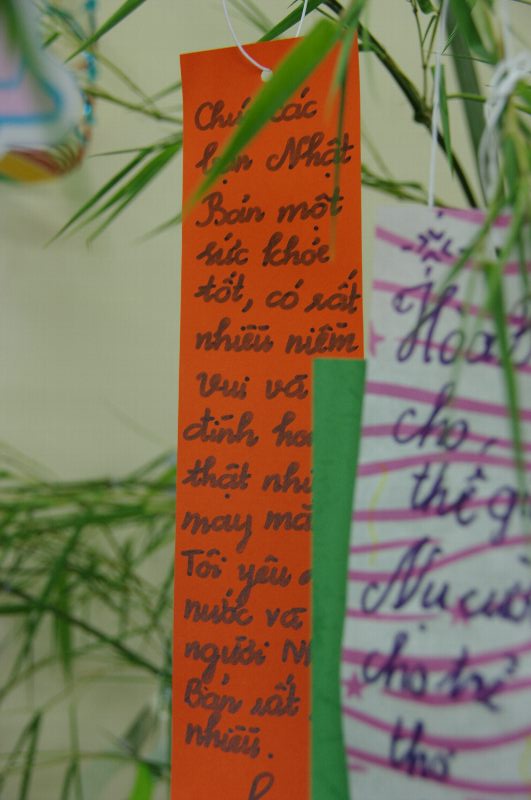 Chúc các
bạn Nhật
Bản một
sức khỏe
tốt, có rất
nhiều niềm
vui và
đình
thật
may
Tôi yêu
nước và
người
Bản rất
nhiều.
Hòa
cho
thế
Nụ cười
cho trẻ
thơ